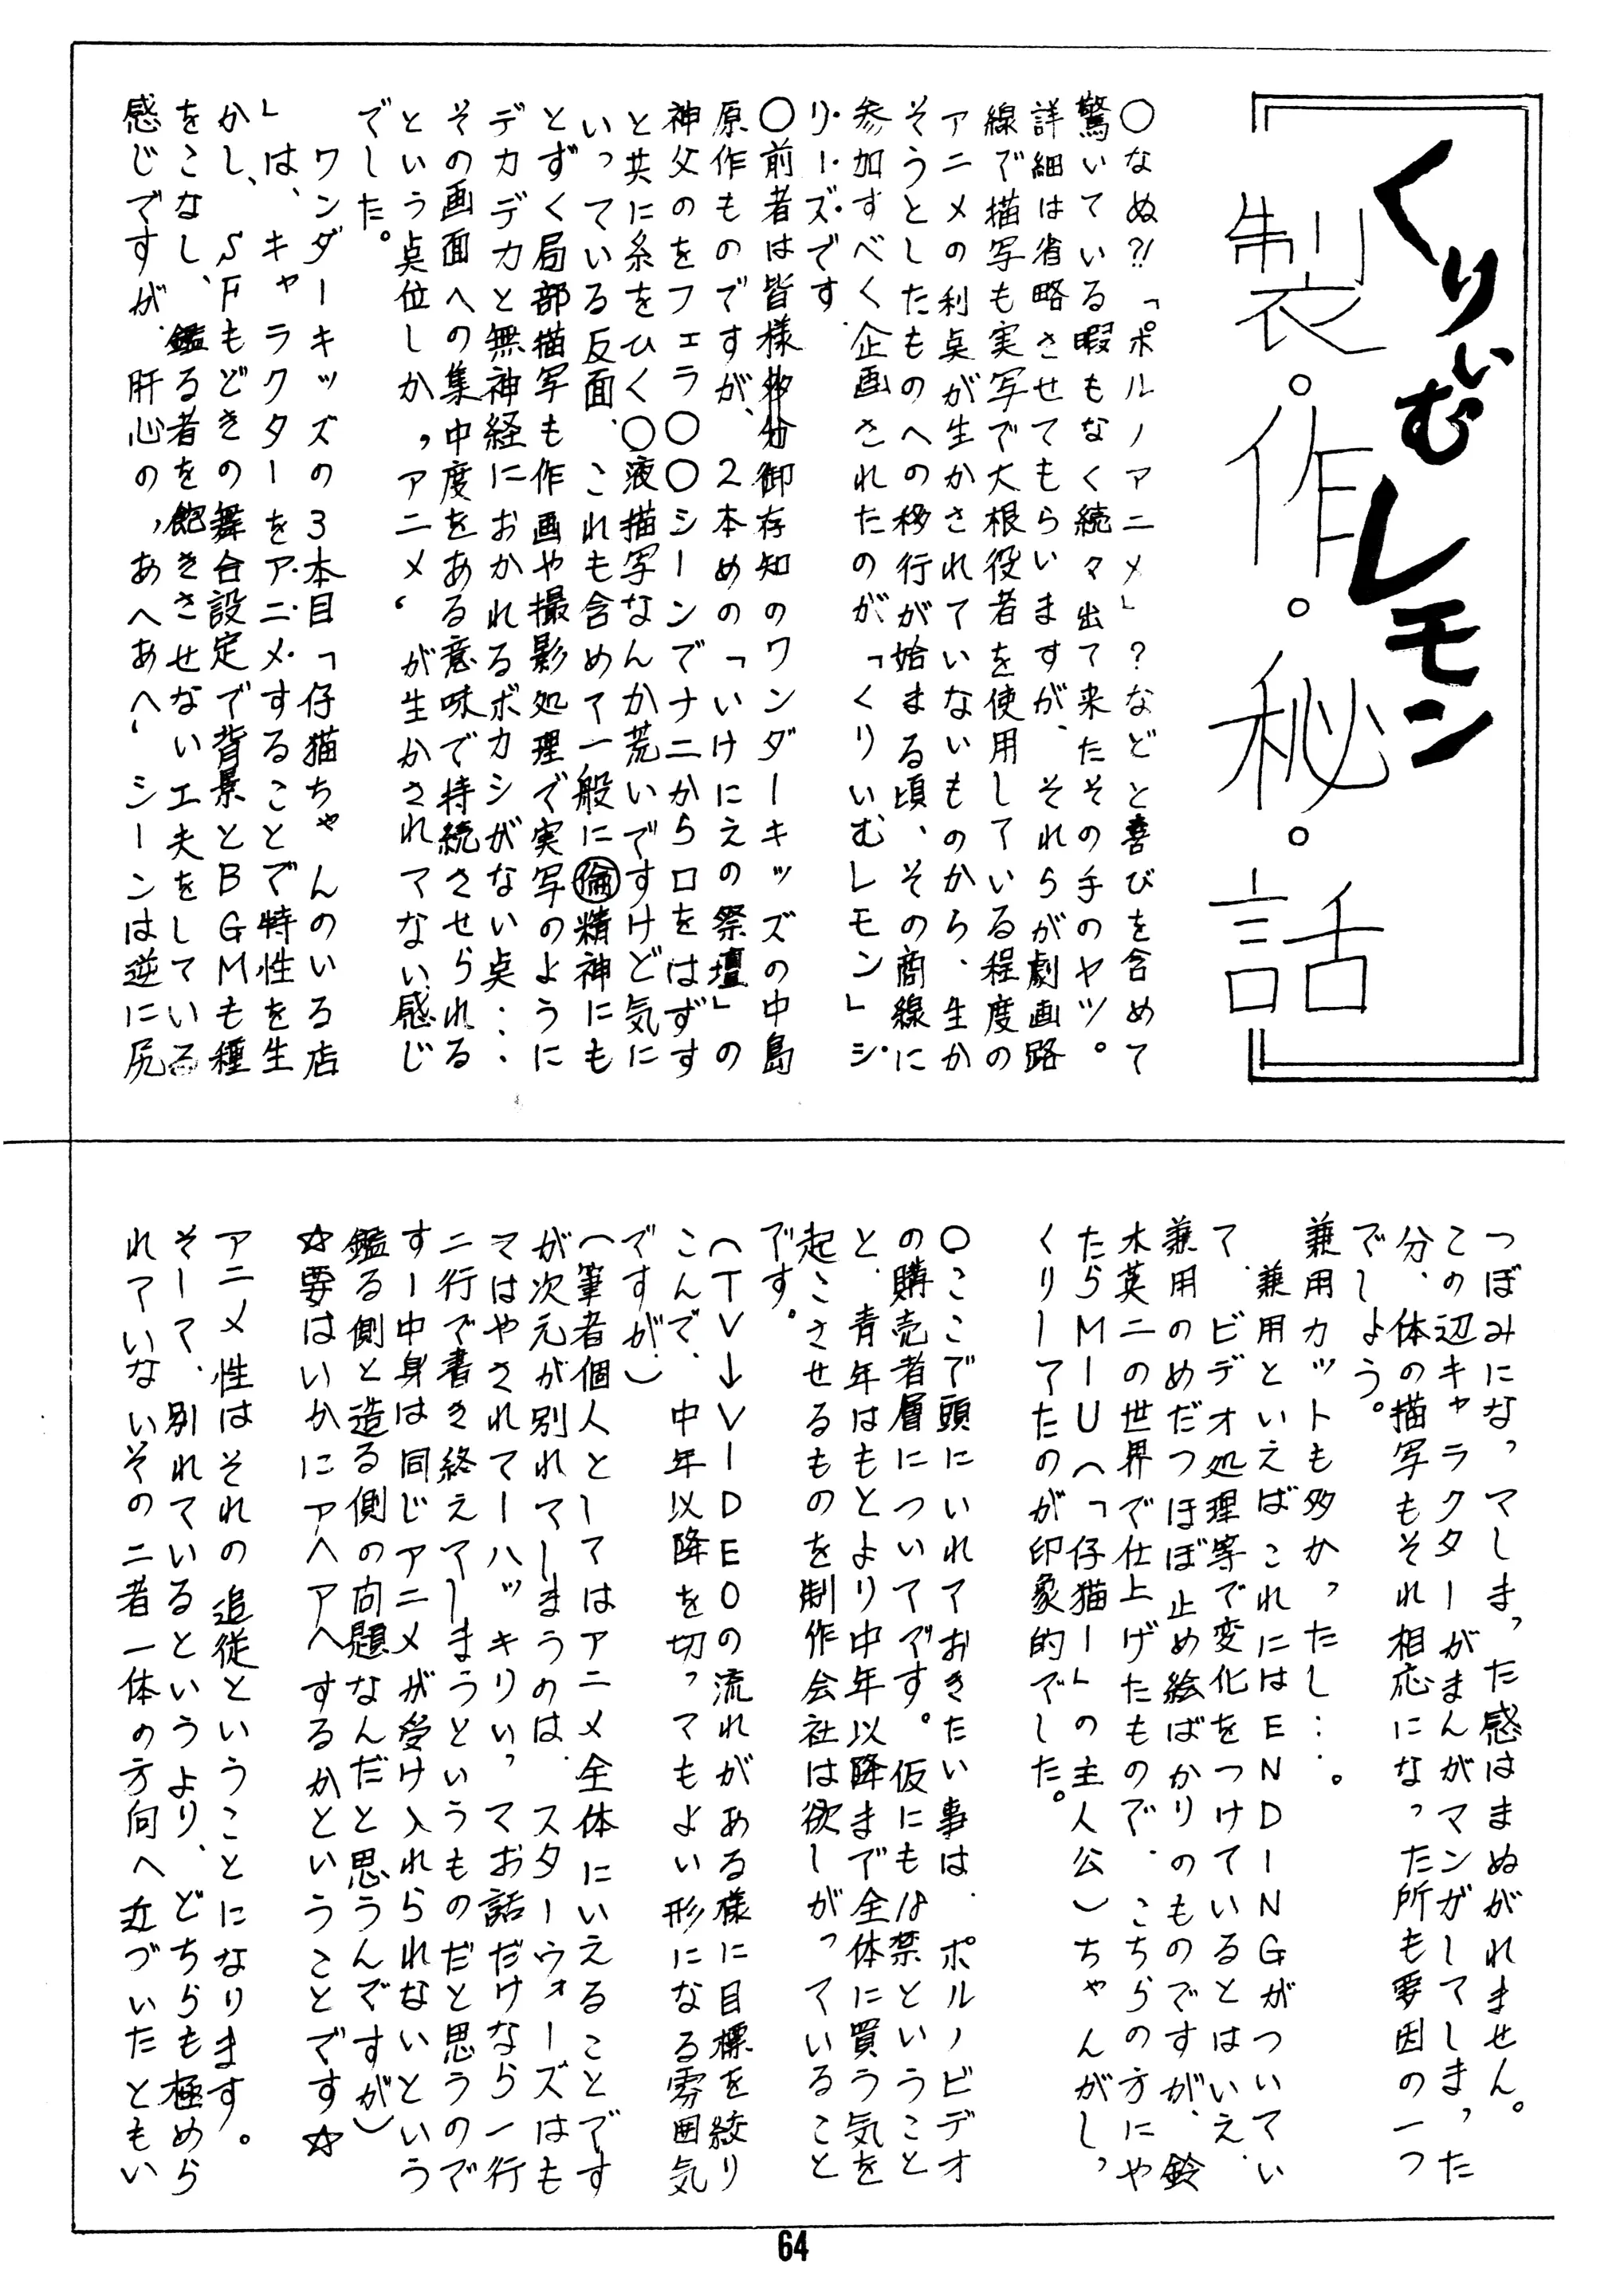 くりぃむレモン
製。作。秘。話
○なぬ?!「ポルノアニメ」?などと喜びを含めて
驚いている暇もなく続々出て来たその手のヤツ。
詳細は省略させてもらいますが、それらが劇画路
線で描写も実写で大根役者を使用している程度の
アニメの利点が生かされていないものから、生か
そうとしたものへの移行が始まる頃、その商線に
参加すべく企画されたのが「くりいむレモン」シ
リーズです
○前者は皆様多分御存知のワンダーキッズの中島
原作ものですが、2本めの「いけにえの祭壇」の
神父のをフェラ○○シーンでナニから口をはずす
と共に糸をひく○液描写なんか荒いですけど気に
いっている反面、これも含めて一般に倫精神にも
とずく局部描写も作画や撮影処理で実写のように
デカデカと無神経におかれるボカシがない点…、
その画面への集中度をある意味で持続させられる
という点位しか、アニメ‘が生かされてない感じ
でした。
ワンダーキッズの3本目「仔猫ちゃんのいる店
」は、キャラクターをアニメすることで特性を生
かし、SFもどきの舞台設定で背景とBGMも種
をこなし、鑑る者を飽きさせない工夫をしている
感じですが、肝心の,あへあへ‘シーンは逆に尻
つぼみになってしまった感はまぬがれません。
この辺キャラクターがまんがマンガしてしまった
分、体の描写もそれ相応になった所も要因の一つ
でしょう。
兼用カットも多かったし…。
兼用といえばこれにはENDINGがついてい
て、ビデオ処理等で変化をつけているとはいえ、
兼用のめだつほぼ止め絵ばかりのものですが、鈴
木英二の世界で仕上げたもので、こちらの方にや
たらMーU(「仔猫ー」の主人公)ちゃんがし、
くりーてたのが印象的でした。
○ここで頭にいれておきたい事は、ポルノビデオ
の購売者層についてです。仮にも18禁ということ
と、青年はもとより中年以降まで全体に買う気を
起こさせるものを制作会社は欲しがっていること
です。
(TV→VIDEOの流れがある様に目標を絞り
こんで、中年以降を切ってもよい形になる雰囲気
ですが、)
(筆者個人としてはアニメ全体にいえることです
が次元が別れてしまうのは、スターウォーズはも
てはやされてーハッキリいってお話だけなら一行
二行で書き終えてしまうというものだと思うので
すー中身は同じアニメが受け入れられないという
鑑る側と造る側の向題なんだと思うんですが)
☆要はいかにアヘアへするかということです☆
アニメ性はそれの追従ということになります。
そして、別れているというより、どちらも極めら
れていないその二者一体の方向へ近づいたともい
64